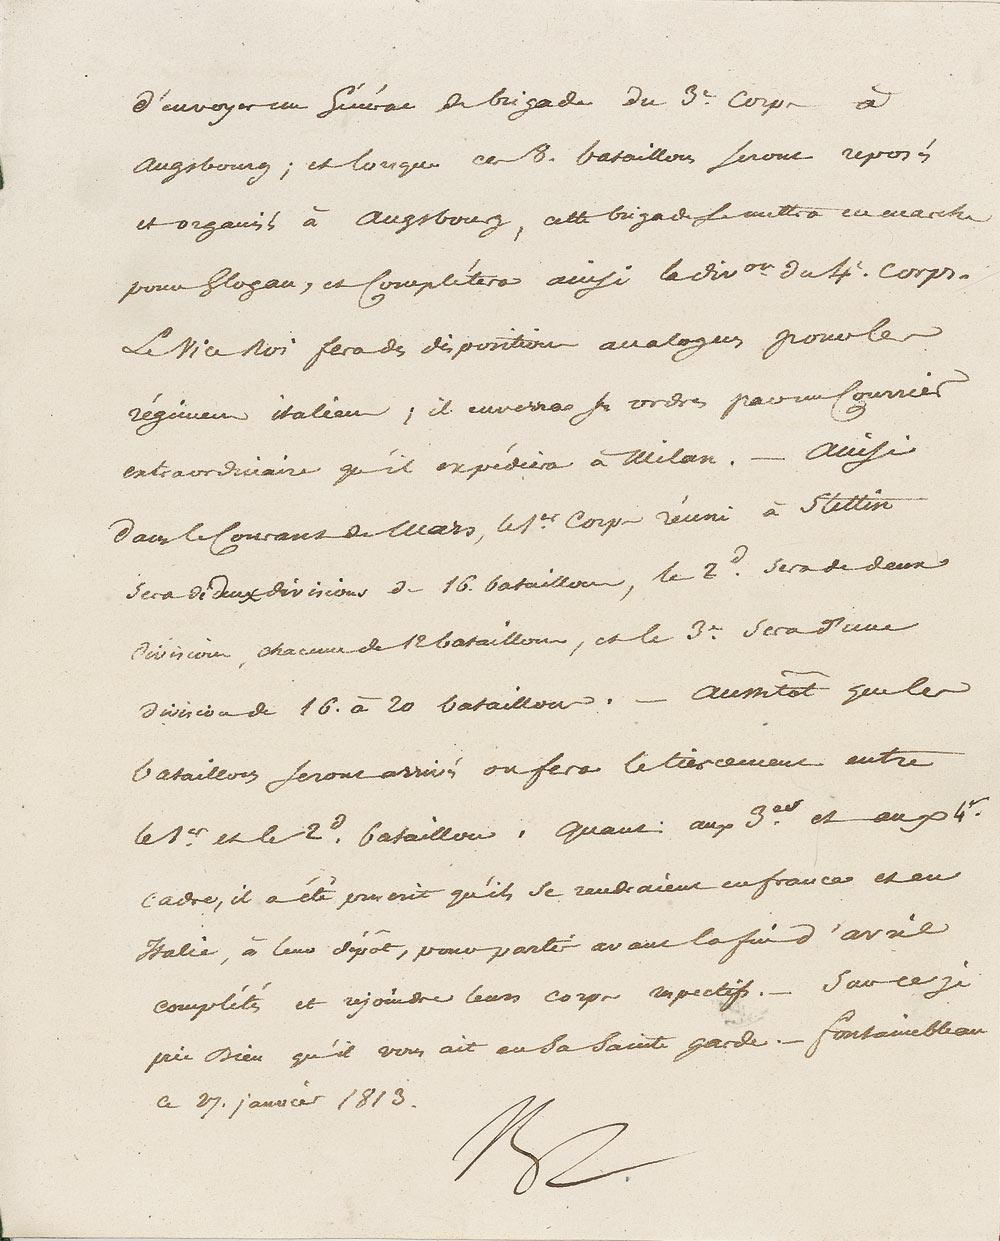 d'envoyer un Général de brigade du 3e Corps à
Augsbourg; et lorsque ces 8. bataillons seront reposés
et organisés à Augsbourg, cette brigade se mettra en marche
pour Glogau, et Complétera ainsi la divon du 4e. Corps.
Le Vice Roi fera des dispositions analogues pour les
régimens italiens; il enverra ses ordres par un Courrier
extraordinaire qu'il expédiera à Milan. — Ainsi
Dans le Courant de Mars, le 1er Corps réuni à Stettin
sera de deux divisions de 16. bataillons, le 2d. sera de deux
divisions, chacune de 12 bataillons, et le 3e sera d'une
division de 16. à 20 bataillons. — Aussitôt que les
bataillons seront arrivés on fera le tiercement entre
le 1er et le 2d. bataillons. Quant aux 3es et aux 4e.
cadres, il a été prescrit qu'ils se rendraient en france et en
Italie, à leurs dépôts, pour partir avant la fin d'avril
complétés et rejoindre leurs corps respectifs. — Sur ce je
prie Dieu qu'il vous ait en sa Sainte garde. — Fontainebleau
ce 27. janvier 1813.